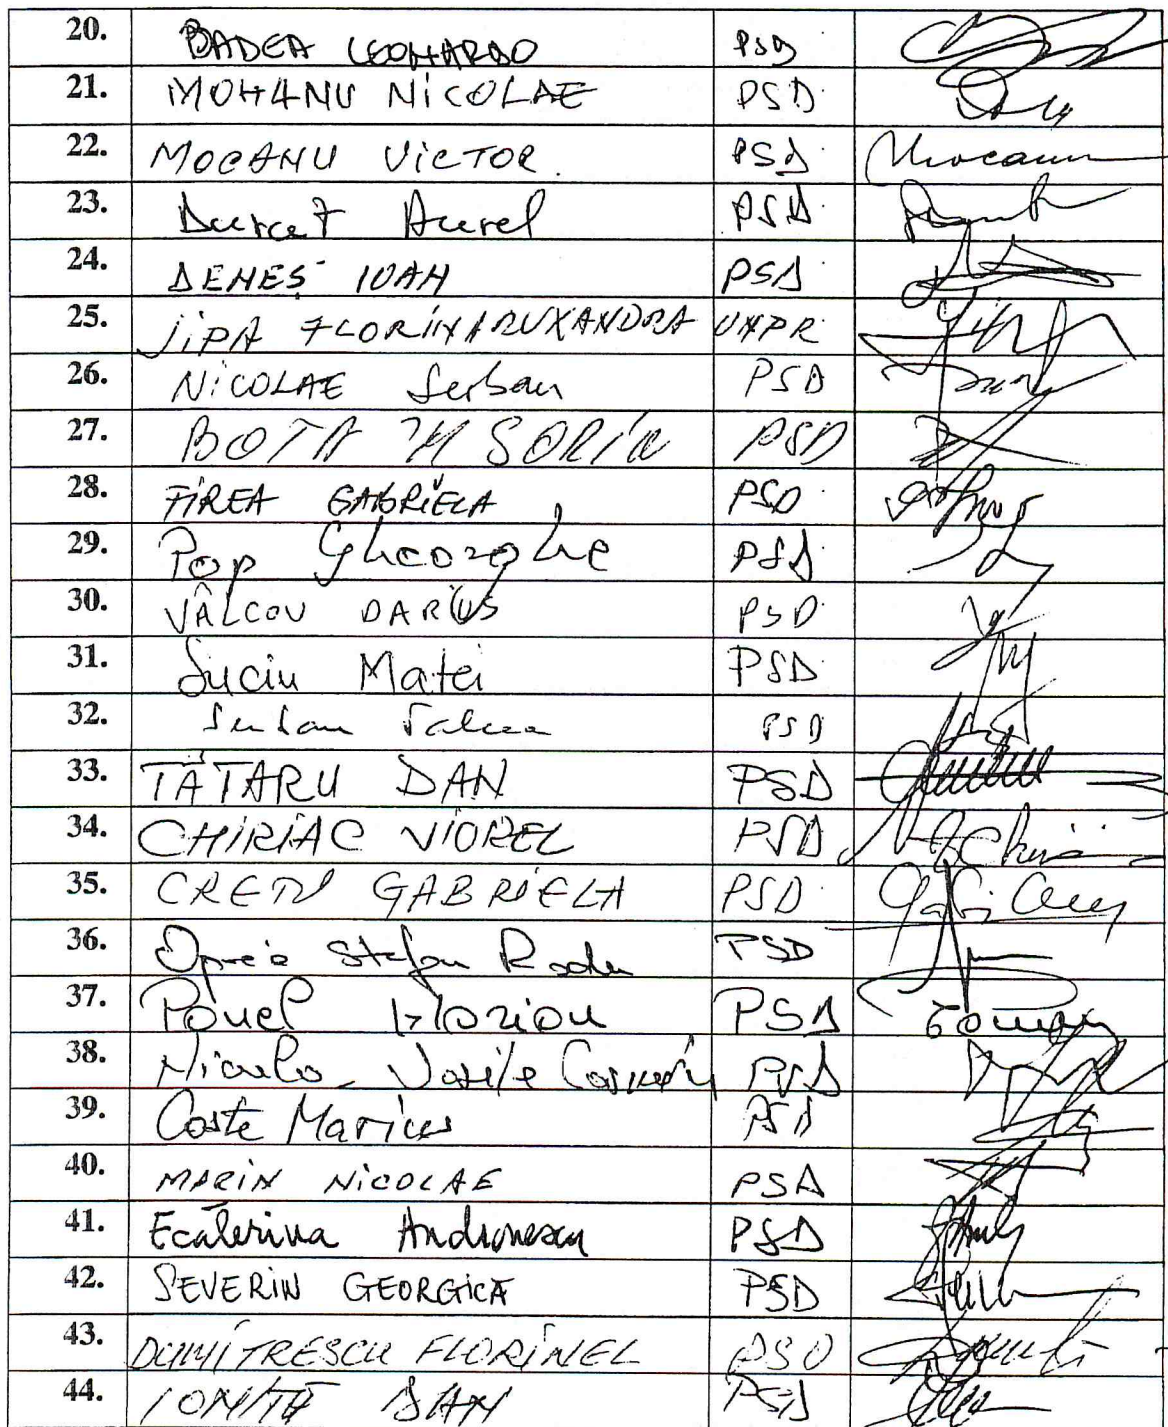 20. BADEA LEONARDO PSD
21. MOHANU NICOLAE PSD
22. MOCANU VICTOR PSD Mocanu
23. Durcat Aurel PSD
24. DENEȘ IOAN PSD
25. JIPA FLORINA RUXANDRA UNPR
26. NICOLAE Serban PSD
27. BOTA M SORIN PSD
28. FIREA GABRIELA PSD
29. Pop Gheorghe PSD
30. VÂLCOV DARIUS PSD
31. Suciu Matei PSD
32. Serban Valeca PSD
33. TĂTARU DAN PSD
34. CHIRIAC VIOREL PSD
35. CRETU GABRIELA PSD
36. Oprea Stefan Radu PSD
37. Pavel Marian PSD
38. Nicula Vasile Cosmin PSD
39. Coste Marius PSD
40. MARIN NICOLAE PSD
41. Ecaterina Andronescu PSD
42. SEVERIN GEORGICĂ PSD
43. DUMITRESCU FLORINEL PSD
44. IONIȚĂ DAN PSD